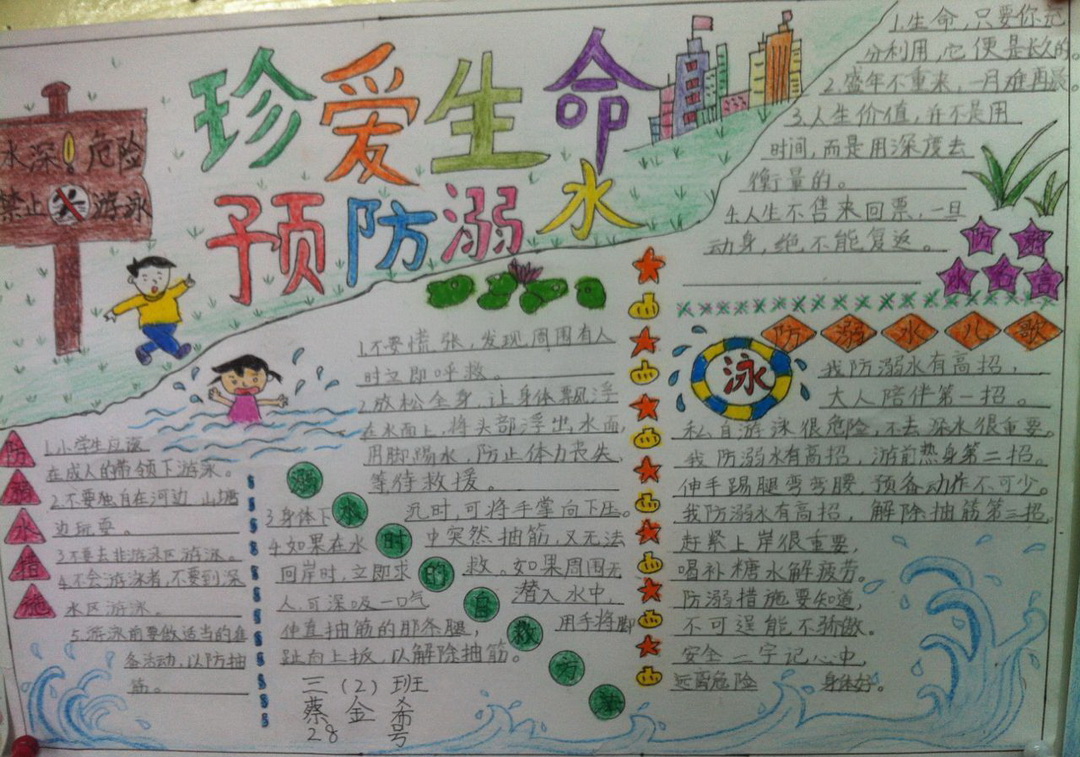 珍爱生命
预防溺水
水深！危险
禁止游泳
1.生命,只要你充
分利用,它便是长久的。
2.盛年不重来,一月难再晨。
3.人生价值,并不是用
时间,而是用深度去
衡量的。
4.人生不售来回票,一旦
动身,绝不能复返。
防溺
水名言
防溺水措施
1.小学生应该
在成人的带领下游泳。
2.不要独自在河边 山塘
边玩耍。
3.不要去非游泳区游泳。
4.不会游泳者,不要到深
水区游泳。
5.游泳前要做适当的准
备活动,以防抽
筋。
溺水时的自救方法
1.不要慌张,发现周围有人
时立即呼救。
2.放松全身,让身体飘浮
在水面上,将头部浮出水面,
用脚踢水,防止体力丧失,
等待救援。
3.身体下沉时,可将手掌向下压。
4.如果在水中突然抽筋,又无法
回岸时,立即求救。如果周围无
人,可深吸一口气潜入水中,
伸直抽筋的那条腿,用手将脚
趾向上扳,以解除抽筋。
三(2)班
蔡金希
28号
防溺水儿歌
泳
我防溺水有高招,
大人陪伴第一招。
私自游泳很危险,不去深水很重要。
我防溺水有高招,游前热身第二招。
伸手踢腿弯弯腰 预备动作不可少。
我防溺水有高招,解除抽筋第三招,
赶紧上岸很重要,
喝补糖水解疲劳。
防溺措施要知道,
不可逞能不骄傲。
安全二字记心中,
远离危险 身体好。